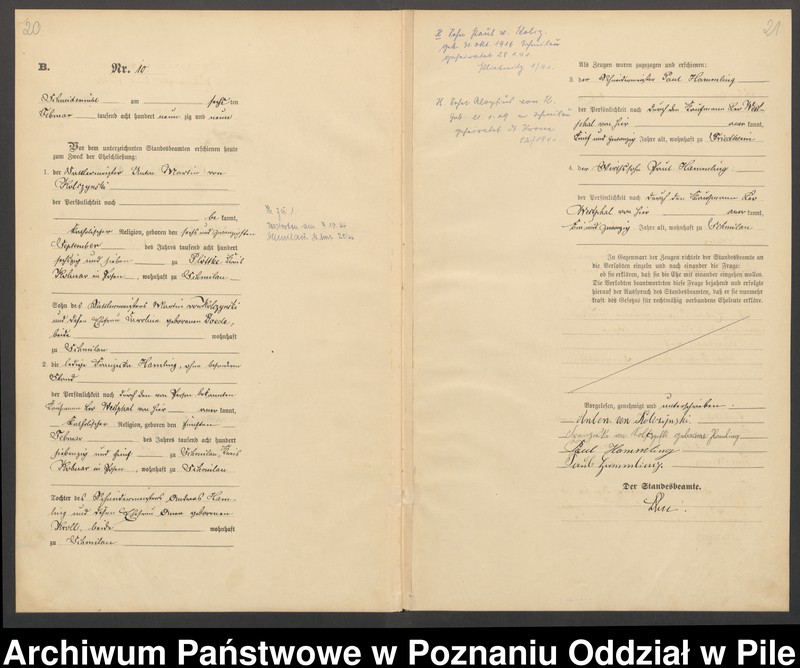 20
B. Nr. 10
Schneidemühl am sechsten
Februar tausend acht hundert neun zig und neun
Vor dem unterzeichneten Standesbeamten erschienen heute
zum Zweck der Eheschließung:
1. der Sattlermeister Anton Martin von
Kolszynski
der Persönlichkeit nach
be kannt,
katholischer Religion, geboren den sechs und zwanzigsten
September des Jahres tausend acht hundert
sechszig und sieben zu Plöttke Kreis
Kolmar in Posen, wohnhaft zu Schmilau
Sohn des Sattlermeisters Martin von Kolszynski
und dessen Ehefrau Karoline geborenen
beide wohnhaft
zu Schmilau
2. die ledige Franziska Hamling, ohne besonderen
Stand
der Persönlichkeit nach durch den von Person bekannten
Kaufmann Leo Westphal von hier aner kannt,
katholischer Religion, geboren den fünften
Februar des Jahres tausend acht hundert
siebenzig und fünf zu Schmilau, Kreis
Kolmar in Posen, wohnhaft zu Schmilau
Tochter des Schneidermeisters Andreas Ham-
ling und dessen Ehefrau Anna geborenen
Kroll, beide wohnhaft
zu Schmilau
21
Sohn Paul v.
geb. 31. Okt. 1916 Schmilau
geheiratet
Sohn Aloysius von K.
geb. in Schmilau
geheiratet
Als Zeugen waren zugezogen und erschienen:
3. der Schneidermeister Paul Hammling
der Persönlichkeit nach durch den Kaufmann Leo West-
phal von hier aner kannt,
fünf und zwanzig Jahre alt, wohnhaft zu
4. der Wirthssohn Paul Hammling
der Persönlichkeit nach durch den Kaufmann Leo
Westphal von hier aner kannt,
und zwanzig Jahre alt, wohnhaft zu Schmilau
In Gegenwart der Zeugen richtete der Standesbeamte an
die Verlobten einzeln und nach einander die Frage:
ob sie erklären, daß sie die Ehe mit einander eingehen wollen.
Die Verlobten beantworteten diese Frage bejahend und erfolgte
hierauf der Ausspruch des Standesbeamten, daß er sie nunmehr
kraft des Gesetzes für rechtmäßig verbundene Eheleute erkläre.
Vorgelesen, genehmigt und unterschrieben.
Anton von Kolszynski.
Franziska von Kolszynski geborene Hamling
Paul Hammling
Paul Hammling.
Der Standesbeamte.
Archiwum Państwowe w Poznaniu Oddział w Pile